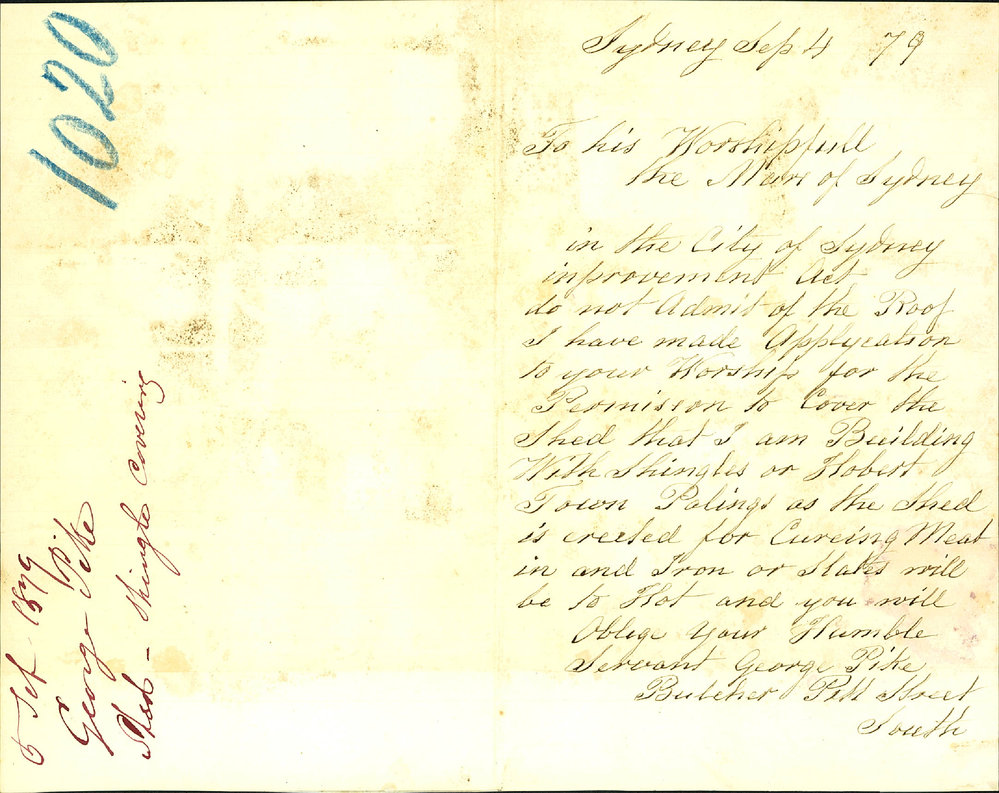 1020
5 Sep 1879
George Pike
Shed - Shingle Covering
Sydney Sep 4 79
To his Worshipfull
the Mare of Sydney
in the City of Sydney
improvement Act
do not Admit of the Roof
I have made Applycation
to your Worship for the
Permisson to Cover the
Shed that I am Building
With Shingles or Hobert
Town Palings as the Shed
is erected for Cureing Meat
in and Iron or Slates will
be to Hot and you will
Oblige your Humble
Servant George Pike
Butcher Pitt Street
South